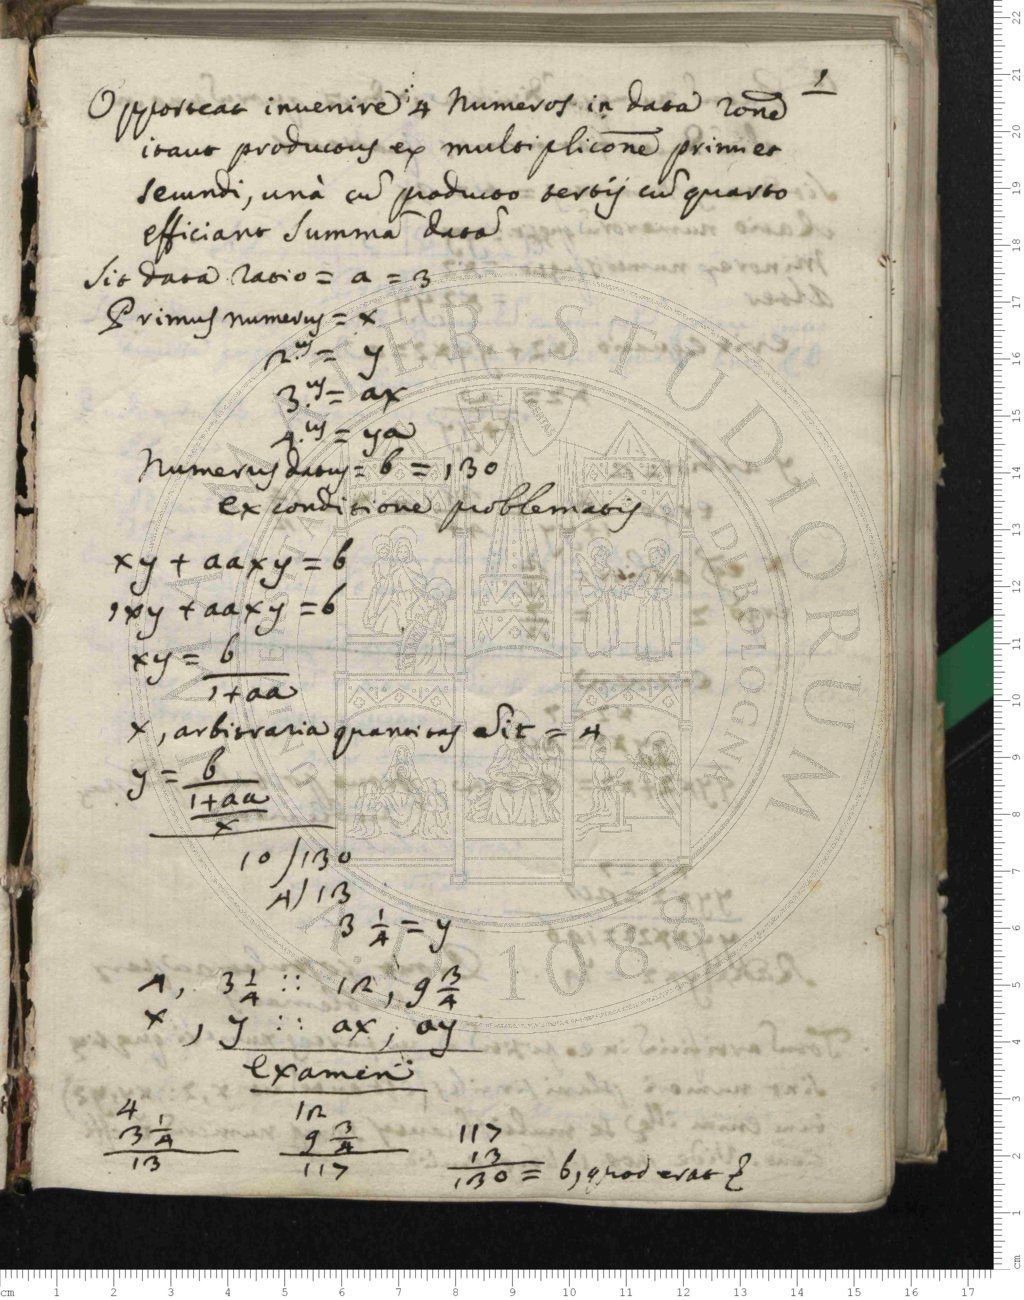 1
Opporteat invenire 4 Numeros in data ronẽ
itaut productus ex multiplicõne primi et
secundi, unà cũ producto tertij cũ quarto
efficiant summã datã
Sit data ratio = a = 3
Primus numerus = x
2.us = y
3.us = ax
4.us = ya
Numerus datus = b = 130
ex conditione problematis
xy + aaxy = b
1xy + aaxy = b
xy = b
1+aa
x, arbitraria quantitas sit = 4
y = b
1+aa
x
10 / 130
4 / 13
3 1/4 = y
4, 3 1/4 :: 12, 9 3/4
x, y :: ax, ay
examen
4 12
3 1/4 9 3/4 117
13 117 13
130 = b, quod erat
ALMA MATER STUDIORUM
UNIVERSITAS BONONIENSIS
A.D. 1088